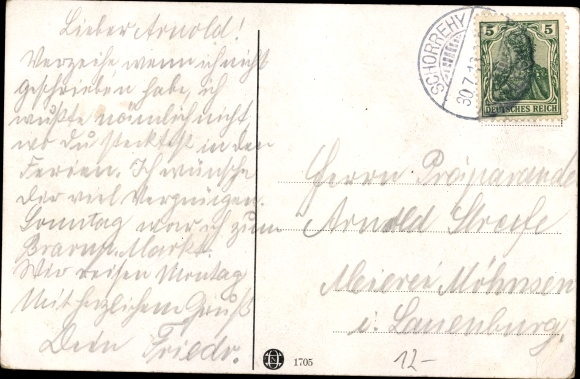 Lieber Arnold!
Verzeihe wenn ich nicht
geschrieben habe, ich
wußte nämlich nicht
wo du stecktest in den
Ferien. Ich wünsche
Dir viel Vergnügen.
Sonntag war ich zum
Markt.
Wir reisen Montag
Mit herzlichem Gruß
Dein Friedr.
SCHORREHY
30.7.13
5 5
DEUTSCHES REICH
Herrn Präparande
Arnold Streefe
Meierei Möhnsen
i. Lauenburg.
1705
12-